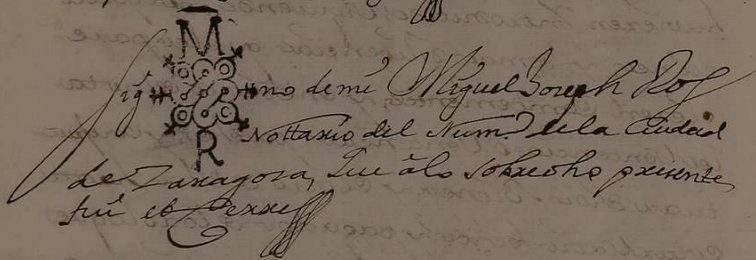 M
Sig no de mi Miguel Joseph Ros
R
Nottario del Num.º de la Ciudad
de Zaragoza, que â lo sobredho presente
fui et Cerre